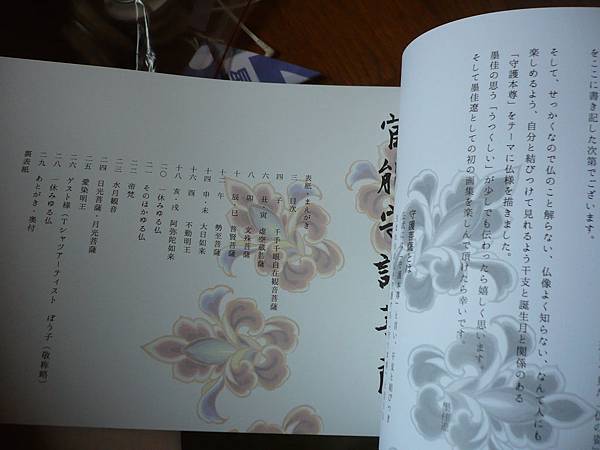 をここに書き記した次第でございます。
そして、せっかくなので仏のこと解らない、仏像よく知らない、なんて人にも
楽しめるよう、自分と結びつけて見れるよう干支と誕生月と関係のある
「守護本尊」をテーマに仏様を描きました。
墨佳の思う「うつくしい」が少しでも伝わったら嬉しく思います。
そして墨佳遼としての初の画集を楽しんで頂けたら幸いです。
墨佳遼
守護菩薩とは
官能守護菩薩
表紙・まえがき
三 目次
四 子 千手千眼自在観音菩薩
六 丑・寅 虚空蔵菩薩
八 卯 文殊菩薩
十 辰・巳 普賢菩薩
十二 午 勢至菩薩
十四 申・未 大日如来
十六 酉 不動明王
十八 亥・戌 阿弥陀如来
二〇 一休みゆる仏
二一 そのほかゆる仏
二二 帝梵
二三 水月観音
二四 日光菩薩・月光菩薩
二五 愛染明王
二六 ゲスト様(Tシャツアーティスト ぼう子(敬称略)
二八 一休みゆる仏
二九 あとがき・奥付
裏表紙